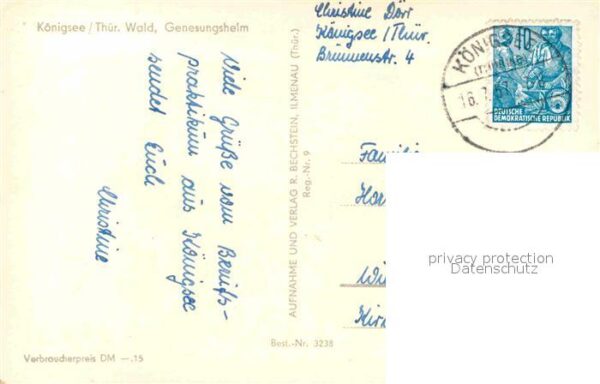 Königsee/Thür. Wald, Genesungsheim
Viele Grüße vom Berufs-
praktikum aus Königsee
sendet Euch
Christine
Verbraucherpreis DM —.15
AUFNAHME UND VERLAG R. BECHSTEIN, ILMENAU (THÜR.)
Reg.-Nr. 9
Best.-Nr. 3238
Christine Dörr
Königsee/Thür.
Brunnenstr. 4
DEUTSCHE
DEMOKRATISCHE REPUBLIK
privacy protection
Datenschutz